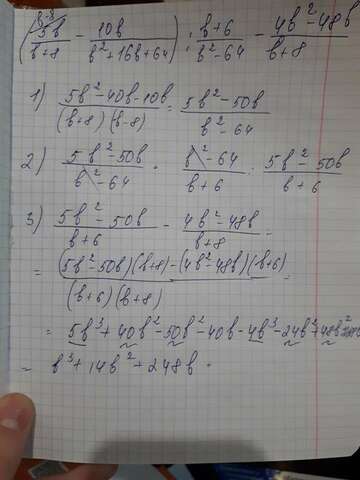 (5в/в+8 - 10в/в²+16в+64) : в+6/в²-64 - 4в²-48в/в+8
1) 5в²-40в-10в/(в+8)(в-8) = 5в²-50в/в²-64
2) 5в²-50в/в²-64 · в²-64/в+6 : 5в²-50в/в+6
3) 5в²-50в/в+6 - 4в²-48в/в+8 =
= (5в²-50в)(в+8)-(4в²-48в)(в+6)/(в+6)(в+8) =
= 5в³+40в²-50в²-40в-4в³-24в²+48в²
= в³+14в²+248в